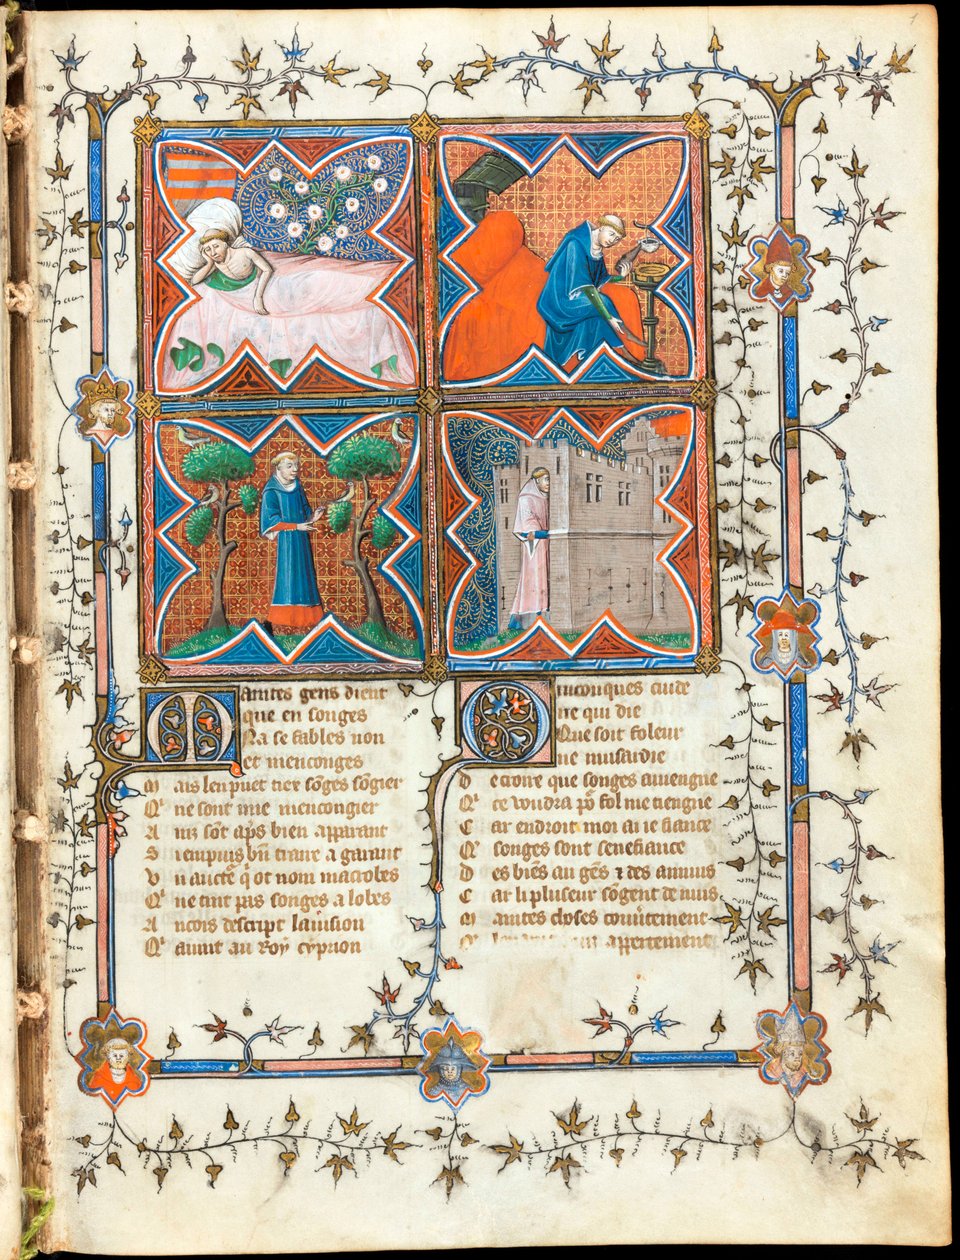 Maintes gens dient
que en songes
Na se fables non
et menconges
Mais len puet tiex sōges sōgier
Qͥ ne sont mie mencongier
Ainz sōt apͤs bien apparant
Si en puis bn̄ traire a garant
Un aucteͬ qͥ ot nom macrobes
Qͥ ne tint pas songes a lobes
Ancois descript lauision
Qͥ auint au Roy cyprion
Quiconques cuide
ne qui die
Que soit foleur
ne musardie
De croire que songes auiengne
Qͥ ce voudra pͬ fol me tiengne
Car endroit moi ai ie fiance
Qͤ songes sont senefiance
Des biēs au gēs ⁊ des annuis
Car li pluseur sōgent de nuis
Maintes choses couūtement
appertement